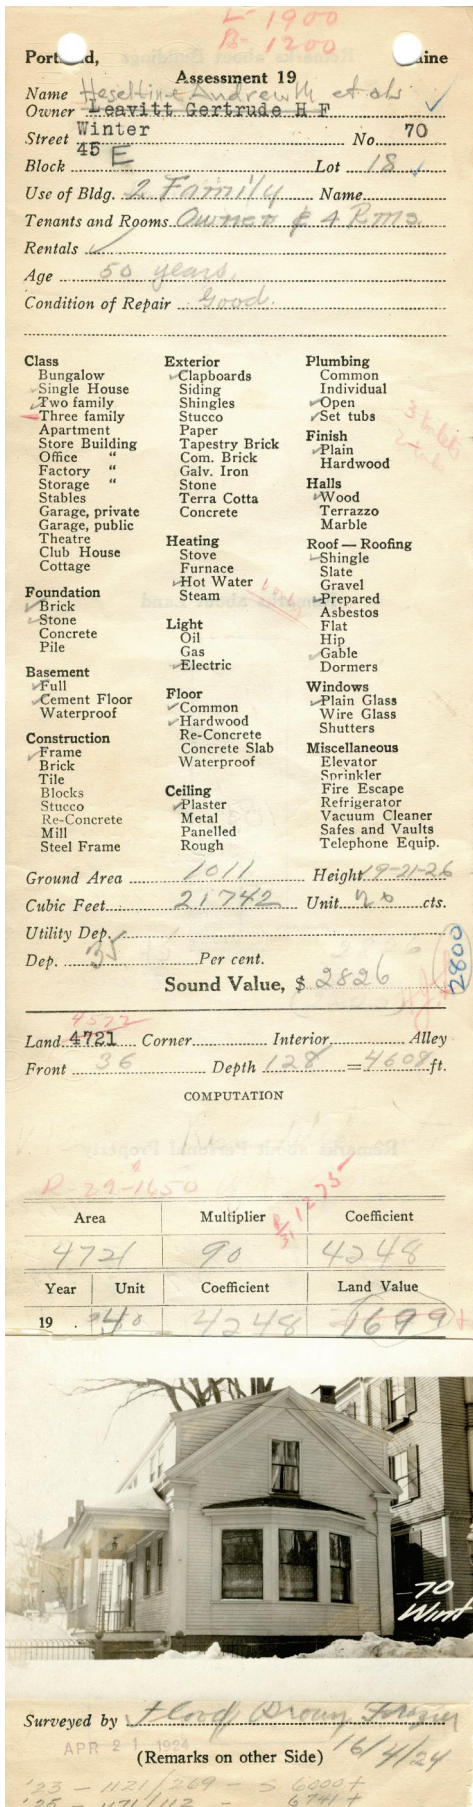 L-1900
B-1200
Portland, Maine
Assessment 19
Name Heseltine Andrew H et als
Owner Leavitt Gertrude H F
Street Winter No. 70
Block 45 E Lot 18
Use of Bldg. 2 Family Name
Tenants and Rooms Owner & 4 Rms.
Rentals
Age 50 years.
Condition of Repair Good.
Class
Bungalow
Single House
Two family
Three family
Apartment
Store Building
Office "
Factory "
Storage "
Stables
Garage, private
Garage, public
Theatre
Club House
Cottage
Foundation
Brick
Stone
Concrete
Pile
Basement
Full
Cement Floor
Waterproof
Construction
Frame
Brick
Tile
Blocks
Stucco
Re-Concrete
Mill
Steel Frame
Exterior
Clapboards
Siding
Shingles
Stucco
Paper
Tapestry Brick
Com. Brick
Galv. Iron
Stone
Terra Cotta
Concrete
Heating
Stove
Furnace
Hot Water
Steam
Light
Oil
Gas
Electric
Floor
Common
Hardwood
Re-Concrete
Concrete Slab
Waterproof
Ceiling
Plaster
Metal
Panelled
Rough
Plumbing
Common
Individual
Open
Set tubs
3 toilets
2 tubs
Finish
Plain
Hardwood
Halls
Wood
Terrazzo
Marble
Roof — Roofing
Shingle
Slate
Gravel
Prepared
Asbestos
Flat
Hip
Gable
Dormers
Windows
Plain Glass
Wire Glass
Shutters
Miscellaneous
Elevator
Sprinkler
Fire Escape
Refrigerator
Vacuum Cleaner
Safes and Vaults
Telephone Equip.
Ground Area 1011 Height 19-21-26
Cubic Feet 21742 Unit 20 cts.
Utility Dep.
Dep. 35 Per cent.
Sound Value, $ 2826
2800
4577
Land 4721 Corner Interior Alley
Front 36 Depth 128 = 4608 ft.
COMPUTATION
R-29-1650
Area Multiplier Coefficient
4721 90 4248
Year Unit Coefficient Land Value
19 . 40 4248 1699
70
Wint
Surveyed by Flood Brown Frazier
APR 21 1924
(Remarks on other Side) 16/4/24
'23 - 1121/269 - S 6000+
'25 - 1171/112 - 6741+